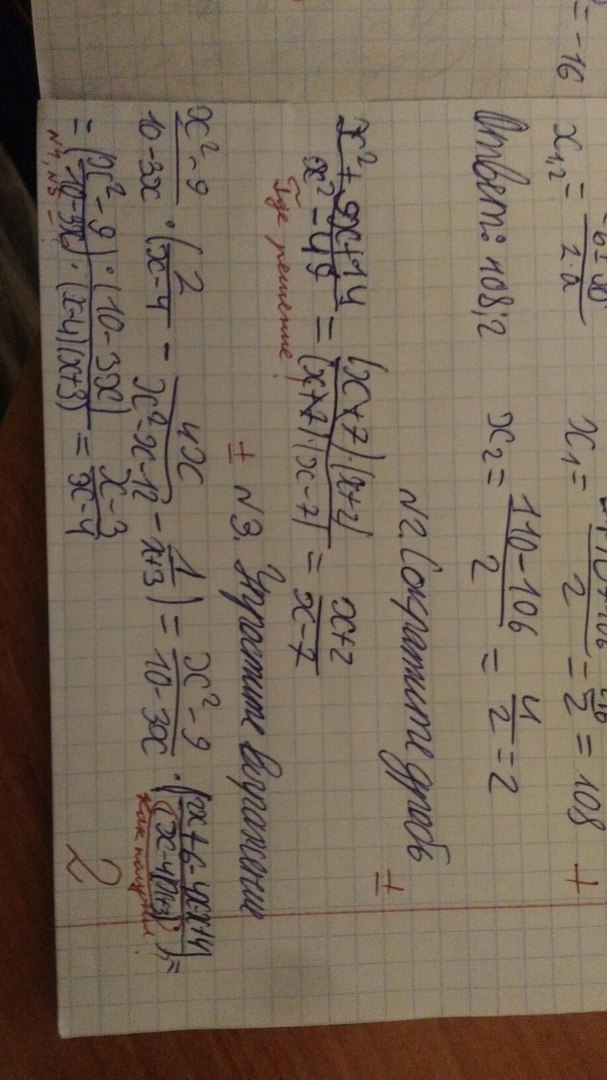 = -16
x₁,₂ =
2·a
x₁ =
2
= 108
+
Ответ: 108; 2
x₂ = (110-106)/2 = 4/2 = 2
N2. Сократите дробь
±
(x²+9x+14)/(x²-49) = ((x+7)(x+2))/((x+7)(x-7)) = (x+2)/(x-7)
Где решение?
± N3. Упростите выражение
(x²-9)/(10-3x) · (2/(x-4) - 4x/(x²-x-12) - 1/(x+3)) = (x²-9)/(10-3x) · ((2x+6-4x-x+4)/((x-4)(x+3))) =
как получили?
= ((x²-9)·(10-3x))/((10-3x)·(x-4)(x+3)) = (x-3)/(x-4)
N4, N5 -
2